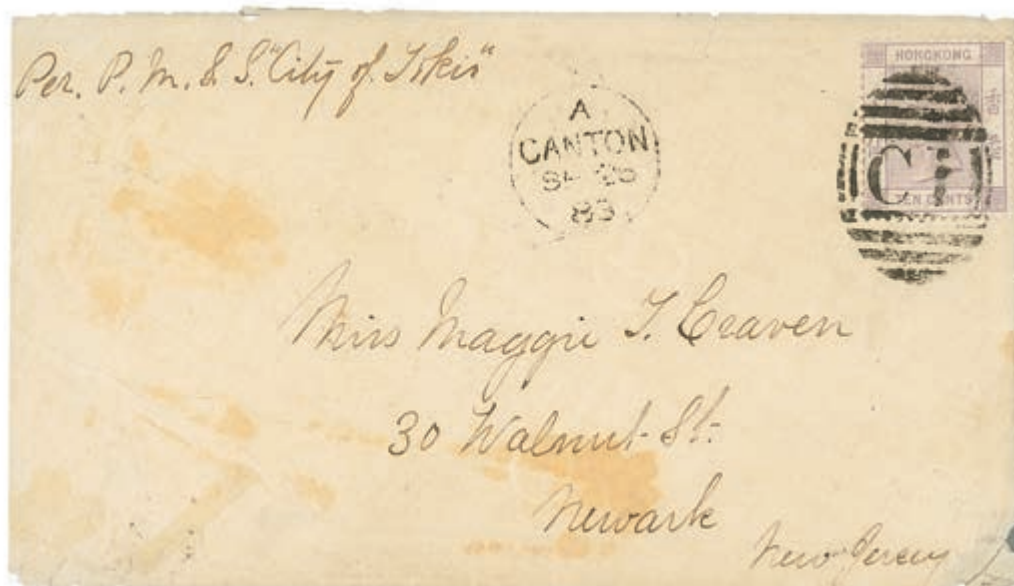 Per. P. M. S. S. "City of Tokio"
A
CANTON
SP 25
83
HONGKONG
C1
TEN CENTS
Miss Maggie T. Craven
30 Walnut St.
Newark
New Jersey